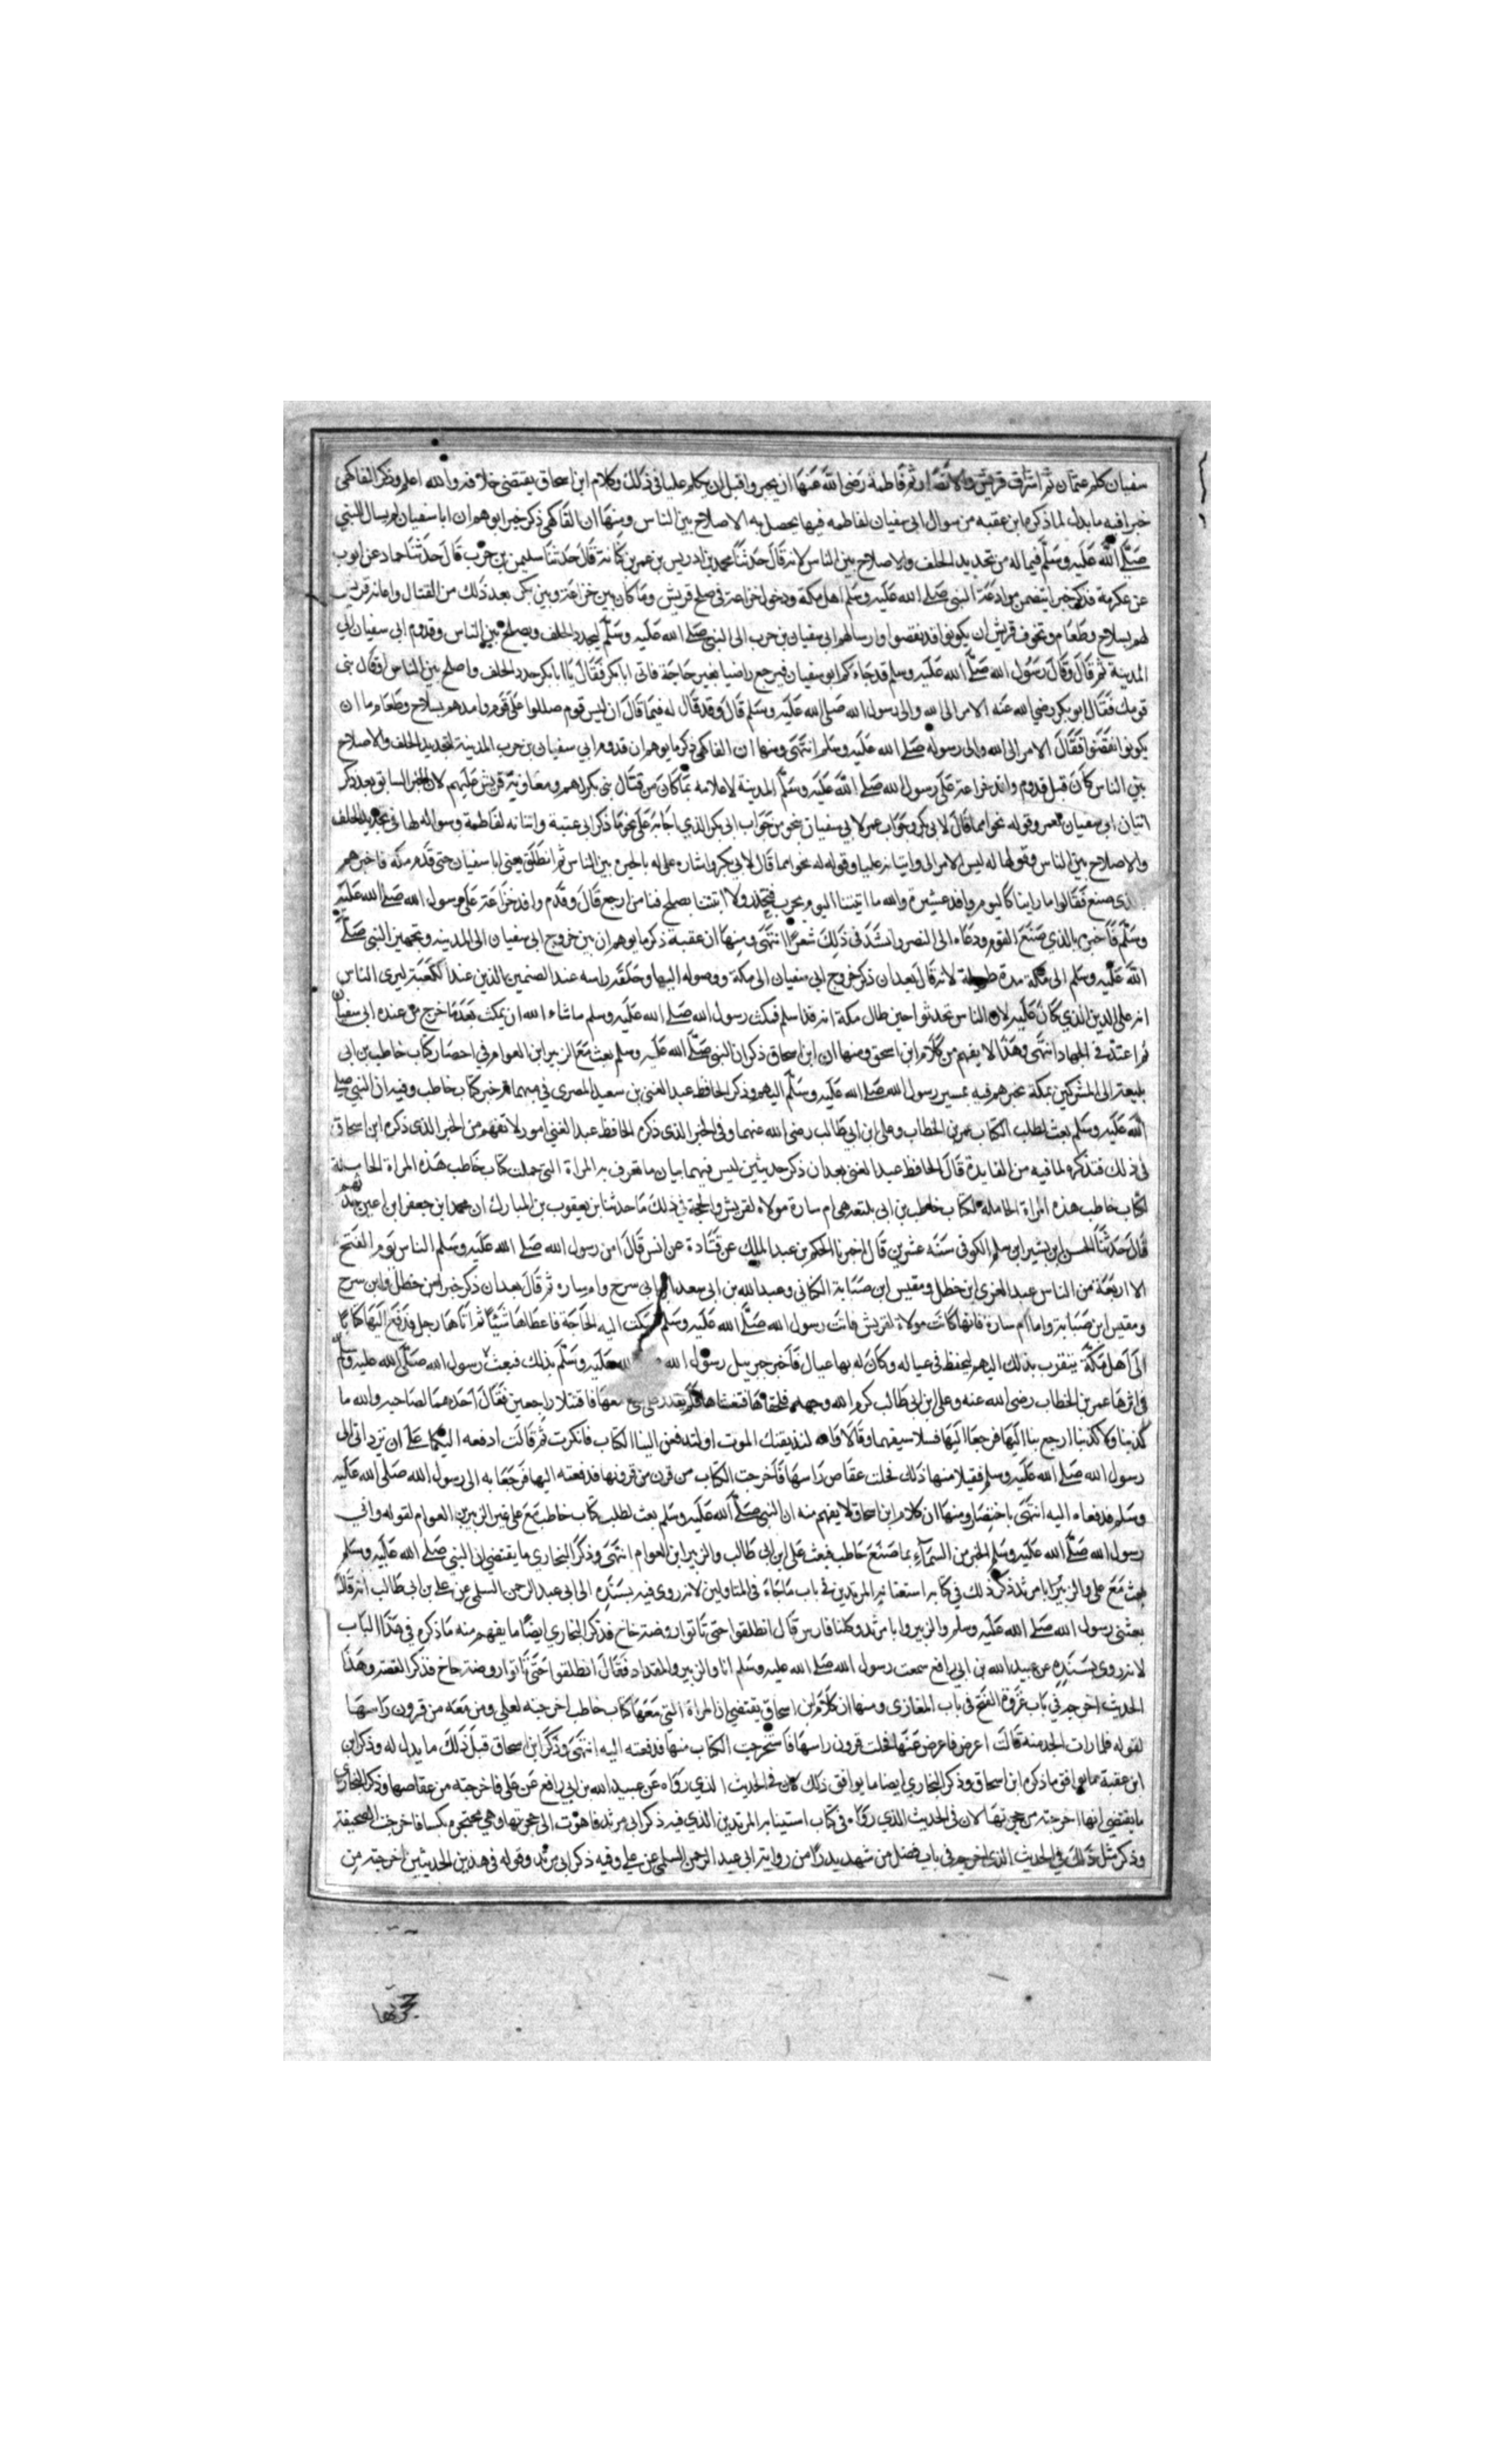 سفيان كلم عثمان ثم اشراف قريش والانصار ثم فاطمة رضي الله عنها ان يجير واقبل ان يكلم عليا في ذلك وكلام ابن اسحاق يقتضي خلاف ذ والله اعلم وذكر الفاكهي
خبرا فيه ما يدل لما ذكره ابن عقبه من سوال ابي سفيان لفاطمه فيما يحصل به الاصلاح بين الناس ومنها ان الفاكهي ذكر خبر ايوهم ان ابا سفيان لم يسال النبي
صلى الله عليه وسلم فيما له من تجديد الحلف والاصلاح بين الناس لانه قال حدثنا محمد بن ادريس بن عمر بن كنانة قال حدثنا سليمن بن حرب قال حدثنا حماد عن ايوب
عن عكرمة فذكر خبرا يتضمن موادعة النبي صلى الله عليه وسلم اهل مكة ودخول خزاعة في صلح قريش وما كان بين خزاعة وبين بكر بعد ذلك من القتال وامانة قريش
لهم بسلاح وطعام وتخوف قريش ان يكونوا قد نقضوا وارسالهم ابي سفيان بن حرب الى النبي صلى الله عليه وسلم ليجدد الحلف ويصلح بين الناس وقدوم ابي سفيان الي
المدينة ثم قال وقال رسول الله صلى الله عليه وسلم قد جاءكم ابو سفيان فيرجع راضيا بغير حاجة فاتى ابا بكر فقال يا ابا بكر جدد الحلف واصلح بين الناس او قال بني
قومك فقال ابو بكر رضي الله عنه الامر الى الله والى رسول الله صلى الله عليه وسلم قال وقد قال له فيما قال ان ليس قوم صللوا على قوم وامدهم بسلاح وطعام ما ان
يكونوا نقضوا فقال الامر الى الله والى رسوله صلى الله عليه وسلم انتهى ومنها ان الفاكهي ذكر ما يوهم ان قدوم ابي سفيان بن حرب المدينة لتجديد الحلف والاصلاح
بين الناس كان قبل قدوم وافد خزاعة على رسول الله صلى الله عليه وسلم المدينة لاعلامه بما كان من قتال بني بكر لهم ومعاونة قريش عليهم لان الخبر السابق بعد ذكر
اتيان ابو سفيان لعمر وقوله نحوا مما قال لابي بكر وجواب عمر لابي سفيان بنحو من جواب ابي بكر الذي اجابه على نحو ما ذكر ابي عتبة واتيانه لفاطمة وسواله لها في تجديد الحلف
والاصلاح بين الناس وقولها له ليس الامر الي واتيانه عليا وقوله له نحوا مما قال لابي بكر واشاره على له بالجيره بين الناس ثم انطلق يعني ابا سفيان حتى قدم مكة فاخبرهم
الذي صنع فقالوا ما راينا كاليوم وافد عشيرة والله ما اتيتنا اليوم بحرب فنحذر ولا اتيتنا بصلح فنامن ارجع قال وقدم وافد خزاعة على رسول الله صلى الله عليه
وسلم فاخبره بالذي صنع القوم ودعاه الى النصر وانشد في ذلك شعرا انتهى ومنها ان عقبة ذكر ما يوهم ان بين خروج ابي سفيان الى المدينه وتجهيز النبي صلى
الله عليه وسلم الى مكة مدة طويلة لانه قال بعد ان ذكر خروج ابي سفيان الى مكة ووصوله اليها وحلقه راسه عند الصنمين الذين عند الكعبة ليرى الناس
انه على الدين الذي كان عليه لان الناس تحدثوا حين طال مكة انه قد اسلم فمكث رسول الله صلى الله عليه وسلم ما شاء الله ان يمكث بعدما خرج من عنده ابي سفيان
ثم اعتد في الجهاد انتهى وهذا لا يفهم من كلام ابن اسحق ومنها ان ابن اسحاق ذكر ان النبي صلى الله عليه وسلم بعث مع الزبير ابن العوام في احصار كتاب خاطب بن ابي
بليعة الى المشركين بمكة يخبرهم فيه بمسير رسول الله صلى الله عليه وسلم اليهم وذكر الحافظ عبد الغني بن سعيد المصري في مبهماته خبر كتاب خاطب وفيه ان النبي صلى
الله عليه وسلم بعث لطلب الكتاب عمر بن الخطاب وعلي ابن ابي طالب رضي الله عنهما وفي الخبر الذي ذكره الحافظ عبد الغني امور لا تفهم من الخبر الذي ذكره ابن اسحاق
في ذلك فنذكره لما فيه من الفايدة قال الحافظ عبد الغني بعد ان ذكر حديثين ليس فيهما بيان ما تعرف به المراة التي حملت كتاب خاطب هذه المراة الحاملة
لكتاب خاطب هذه المراة الحامله لكتاب خاطب بن ابي بلتعه هي ام سارة مولاة لقريش والحجة في ذلك ما حدثنا بن يعقوب بن المبارك ان محمد ابن جعفر ابن اعين حدثهم
قال حدثنا الحسن ابن بشير ابن سلم الكوفي سنه عشرين قال اخبرنا الحكم بن عبد الملك عن قتادة عن انس قال امن رسول الله صلى الله عليه وسلم الناس يوم الفتح
الا اربعة من الناس عبد العزي ابن خطل ومقيس ابن صبابة الكناني وعبد الله بن ابي سعد ابي سرح وام ساره ثم قال بعد ان ذكر خبر ابن خطل وابن سرح
ومقيس ابن صبابة واما ام سارة فانها كانت مولاة لقريش فاتت رسول الله صلى الله عليه وسلم فشكت اليه الحاجة فاعطاها شيئا ثم اتاها رجل فدفع اليها كتابا
الى اهل مكة يتقرب بذلك اليهم ليحفظ في عياله وكان له بها عيال فاخبر جبريل رسول الله عليه وسلم بذلك فبعث رسول الله صلى الله عليه وسلم
في اثرها عمر بن الخطاب رضي الله عنه وعلي ابن ابي طالب كرم الله وجهه فلحقاها ففتشاها فلم يقدر على معها فاقبلا راجعين فقال احدهما لصاحبه والله ما
كذبنا ولا كذبنا ارجع بنا اليها فرجعا اليها فسلا سيفهما وقالا والله لنذيقنك الموت او لتدفعن الينا الكتاب فانكرت ثم قالت ادفعه اليكما على ان تردا لي الى
رسول الله صلى الله عليه وسلم فقبلا منها ذلك فحلت عقاص راسها فاخرجت الكتاب من قرن من قرونها فدفعته اليها فرجعا به الى رسول الله صلى الله عليه
وسلم فدفعاه اليه انتهى باختصار ومنها ان كلام ابن اسحاق لا يفهم منه ان النبي صلى الله عليه وسلم بعث لطلب كتاب خاطب مع علي غير الزبير بن العوام لقوله واتي
رسول الله صلى الله عليه وسلم الخبر من السماء بما صنع خاطب فبعث علي ابن ابي طالب والزبير ابن العوام انتهى وذكر البخاري ما يقتضي ان النبي صلى الله عليه وسلم
بعث مع علي والزبير ابا مرثد ذكر ذلك في كتابه استتابة المرتدين في باب ما جاء في المتاولين لانه روى فيه بسنده الى ابي عبد الرحمن السلمي عن علي بن ابي طالب انه قال
بعثني رسول الله صلى الله عليه وسلم والزبير وابا مرثد وكلنا فارس قال انطلقوا حتى تاتوا روضة خاخ فذكر البخاري ايضا ما يفهم منه ما ذكره في هذا الباب
لانه روى بسنده عن عبيد الله بن ابي رافع سمعت رسول الله صلى الله عليه وسلم انا والزبير والمقداد فقال انطلقوا حتى تاتوا روضة خاخ فذكر القصة وهذا
الحديث اخرجه في باب غزوة الفتح في باب المغازي ومنها ان كلام ابن اسحاق يقتضي ان المراة التي معها كتاب خاطب اخرجته لعلي ومن معه من قرون راسها
لقوله فلما رات الجد منه قالت اعرض فاعرض عنها فحلت قرون راسها فاستخرجت الكتاب منها فدفعته اليه انتهى وذكر ابن اسحاق قبل ذلك ما يدل له وذكر ابن
ابن عقبة مما يوافق ما ذكره ابن اسحاق وذكر البخاري ايضا ما يوافق ذلك كان في الحديث الذي رواه عن عبيد الله بن ابي رافع عن علي فاخرجته من عقاصها وذكر البخاري
ما يقتضي انها اخرجته من حجرتها لان في الحديث الذي رواه في كتاب استتابة المرتدين الذي فيه ذكر ابي مرثد فاهوت الى حجرتها وهي محتجزه بكسا فاخرجت الصحيفة
وذكر مثل ذلك في الحديث الذي اخرجه في باب فضل من شهد بدرا من رواية ابي عبد الرحمن السلمي عن علي وفيه ذكر ابي مرثد وقوله في هذين الحديثين اخرجته من
حجرتها